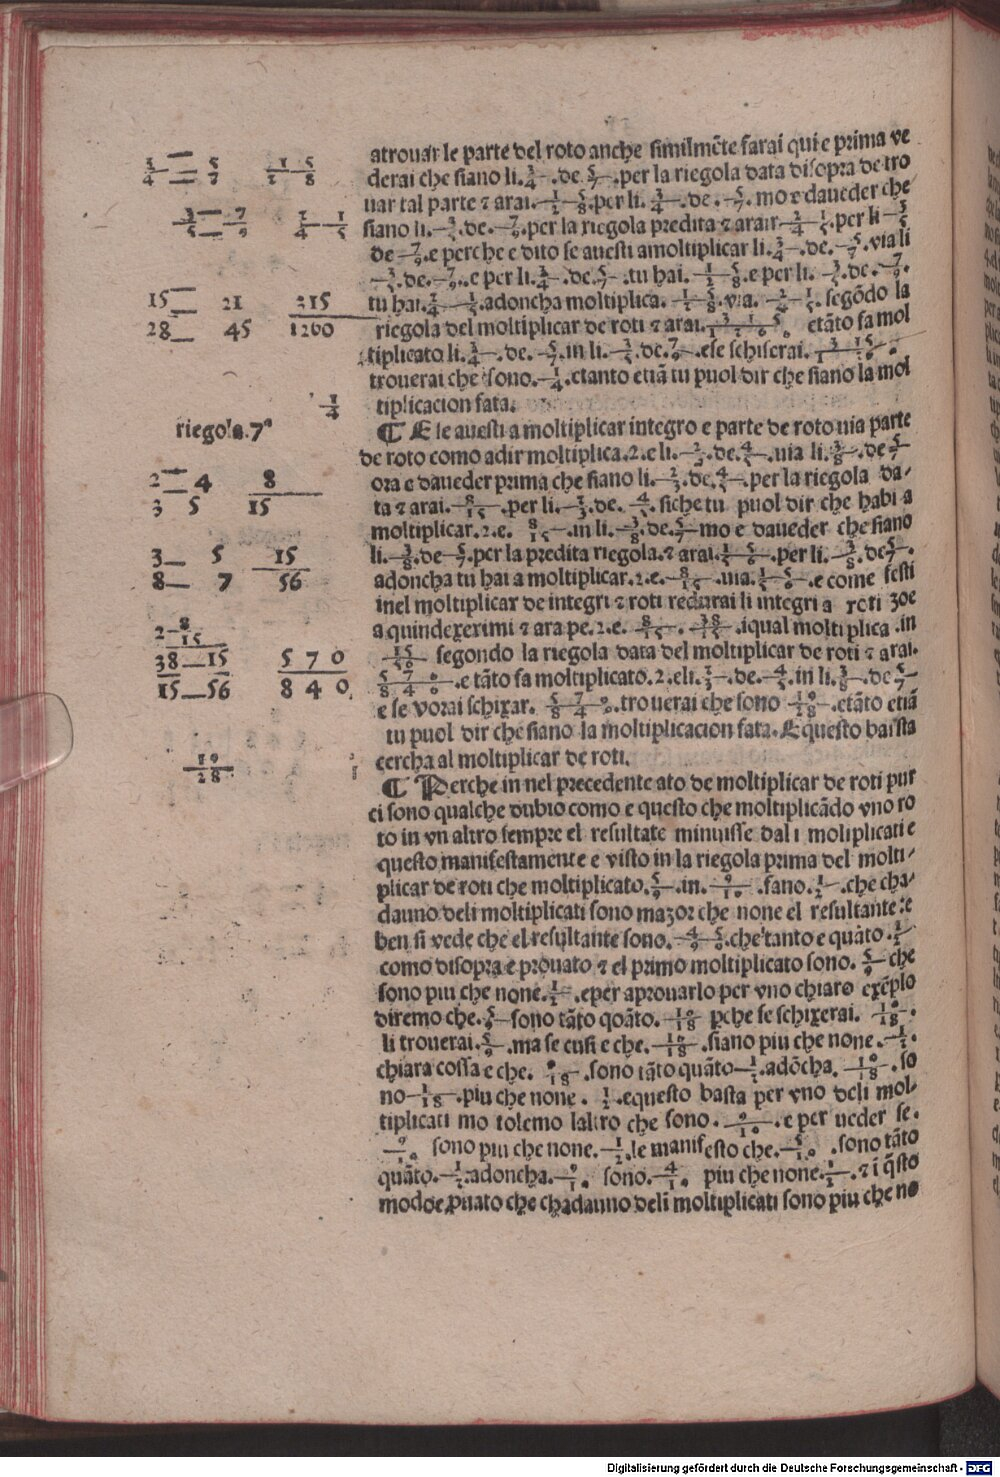 atrouar le parte del roto anche similmēte farai qui e prima ve
derai che siano li.3/4.de.5/7.per la riegola data disopra de tro
uar tal parte ⁊ arai.15/28.per li.3/4.de.5/7.mo e daueder che
siano li.3/5.de.7/9.per la riegola predita ⁊ arai
de.7/9.e perche e dito se auesti amoltiplicar li.3/4.de.5/7.via li
3/5.de.7/9.e per li.3/4.de.5/7.tu hai. e per li.3/5.de.7/9.
tu hai. adoncha moltiplica. via. segōdo la
riegola del moltiplicar de roti ⁊ arai. etāto fa mol
tiplicato li.3/4.de.5/7.in li.3/5.de.7/9.ese schiserai.
trouerai che sono.1/4.etanto etiā tu puol dir che siano la mol
tiplicacion fata.
¶ E se auesti a moltiplicar integro e parte de roto uia parte
de roto como adir moltiplica.2.e li.2/3.de.4/5.uia li.3/8.de 5/7
ora e daueder prima che siano li.2/3.de.4/5.per la riegola da-
ta ⁊ arai.8/15.per li.2/3.de.4/5.siche tu puol dir che habi a
moltiplicar.2.e.8/15.in li.3/8.de.5/7 mo e daueder che siano
li.3/8.de 5/7.per la predita riegola.⁊ arai.15/56.per li.3/8.de 5/7.
adoncha tu hai a moltiplicar.2.e.8/15.uia.15/56.e come festi
inel moltiplicar de integri ⁊ roti redurai li integri a roti zoe
a quindexerimi ⁊ ara pe.2.e.8/15.38/15.iqual molti plica.in
15/56 segondo la riegola data del moltiplicar de roti ⁊ arai.
570/840.e tāto fa moltiplicato.2.e li.2/3.de.4/5.in li.3/8.de 5/7
e se vorai schixar.570/840.trouerai che sono 19/28.etāto etiā
tu puol dir che siano la moltiplicacion fata.E questo basta
cercha al moltiplicar de roti.
¶ Perche in nel precedente ato de moltiplicar de roti pur
ci sono qualche dubio como e questo che moltiplicādo vno ro
to in vn altro sempre el resultate minuisse dal i moliplicati e
questo manifestamente e visto in la riegola prima del molti-
plicar de roti che moltiplicato.5/9.in.9/10.fano.1/2.che cha-
dauno deli moltiplicati sono mazor che none el resultante:e
ben si vede che el resultante sono.45/90.che tanto e quāto.1/2
como disopra e prouato ⁊ el primo moltiplicato sono.5/9 che
sono piu che none.1/2.eper aprouarlo per vno chiaro exēplo
diremo che.5/9 sono tāto qoāto.10/18 pche se schixerai.10/18.
li trouerai.5/9.ma se cusi e che.10/18.siano piu che none.1/2.
chiara cossa e che.9/18.sono tāto quāto 1/2.adōcha.10/18.so
no 1/18.piu che none.1/2.equesto basta per vno deli mol-
tiplicati mo tolemo laltro che sono.9/10.e per ueder se.
9/10 sono piu che none.1/2.le manifesto che.5/10.sono tāto
quāto.1/2.adoncha.9/10 sono.4/10 piu che none.1/2.⁊ i q̄sto
modo e ꝓuato che chadauno deli moltiplicati sono piu che no
3/4 5/7 15/28
3/5 7/9
15 21 315
28 45 1260
1/4
riegola.7ª
2 4 8
3 5 15
3 5 15
8 7 56
2 8/15
38 15 570
15 56 840
19/28
Digitalisierung gefördert durch die Deutsche Forschungsgemeinschaft - DFG